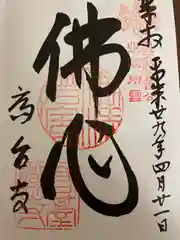 奉拝
平成廿九年四月廿一日
佛心
高台寺